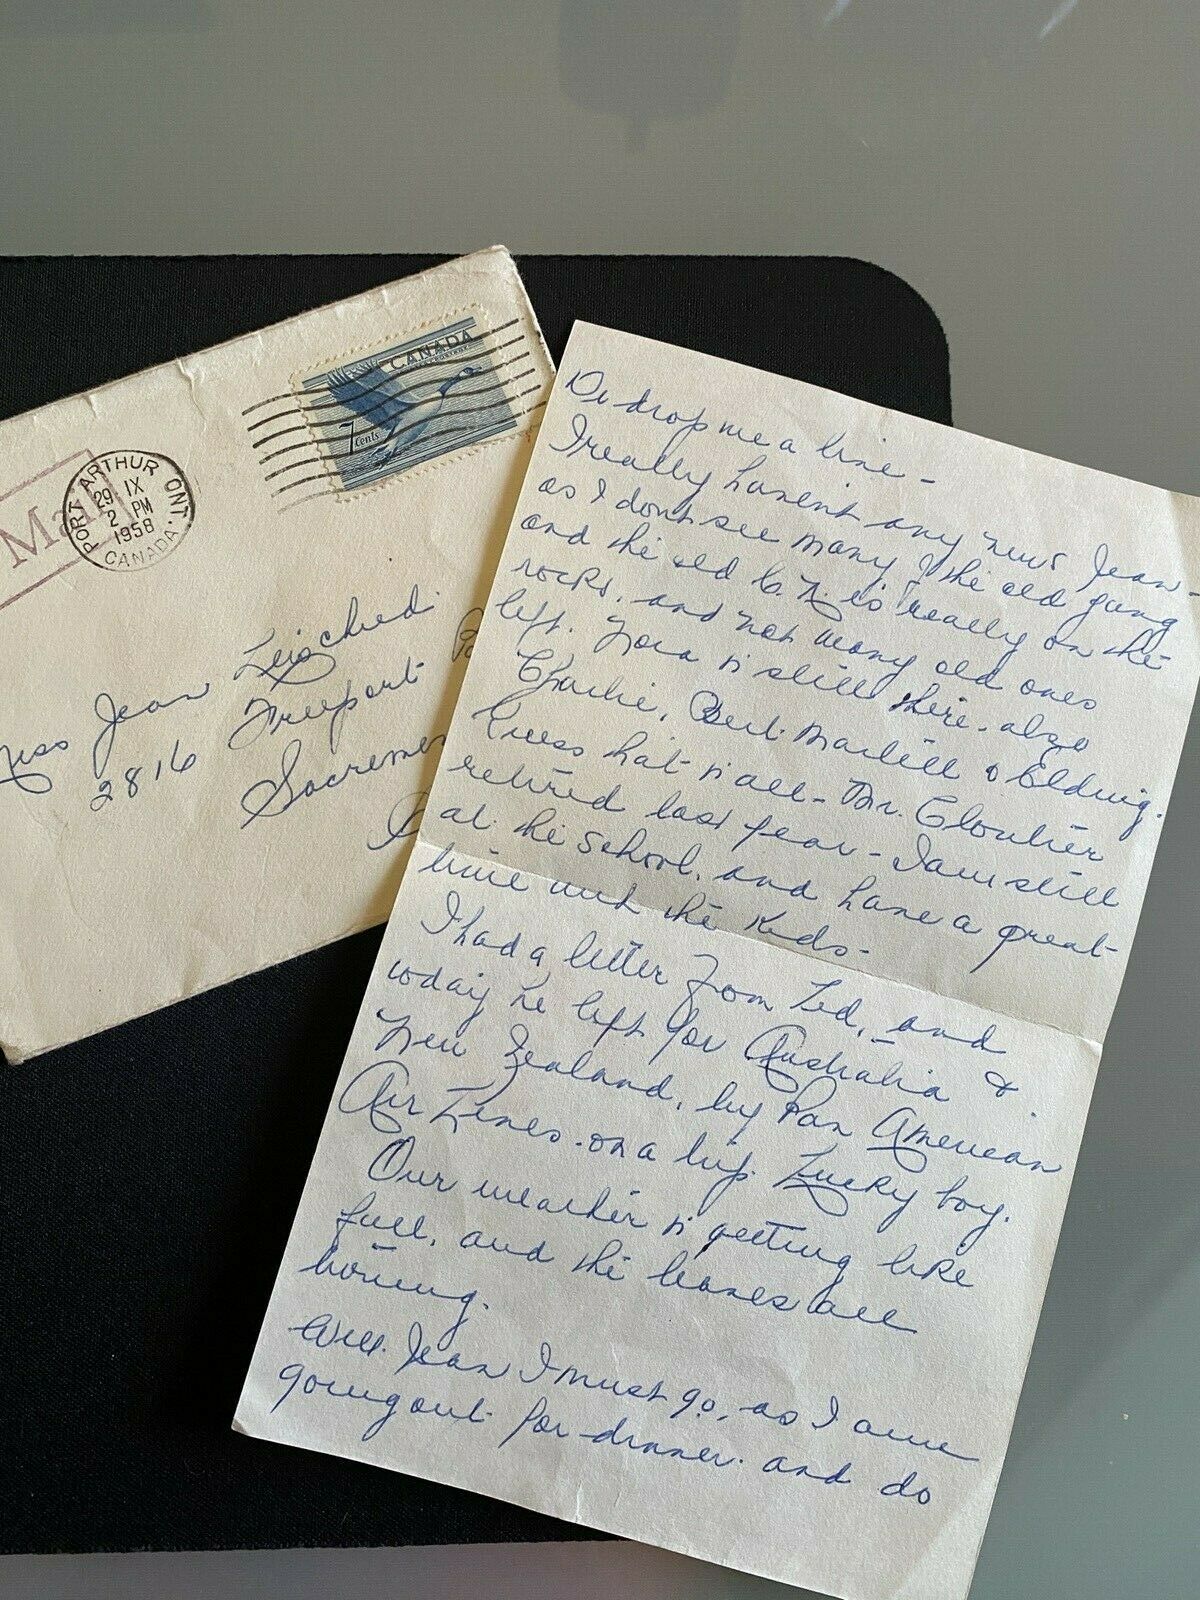 Mail
PORT ARTHUR ONT.
29 IX
2 PM
1958
CANADA
CANADA
7 cents
Miss Jean
2816 Freeport
Do drop me a line -
I really haven't any news Jean -
as I don't see many of the old gang
and the old C. N. is really on the
rocks. and not many old ones
left. Nora is still there. also
Charlie, Bert. Martell &
Guess that is all - Mr. Cloutier
retired last year - I am still
at the School, and have a great
time with the Kids -
I had a letter from Ted, and
today he left for Australia &
New Zealand, by Pan American
Air Lines - on a trip. Lucky boy.
Our weather is getting like
fall, and the leaves all
turning.
Well Jean I must go, as I am
going out for dinner. and do